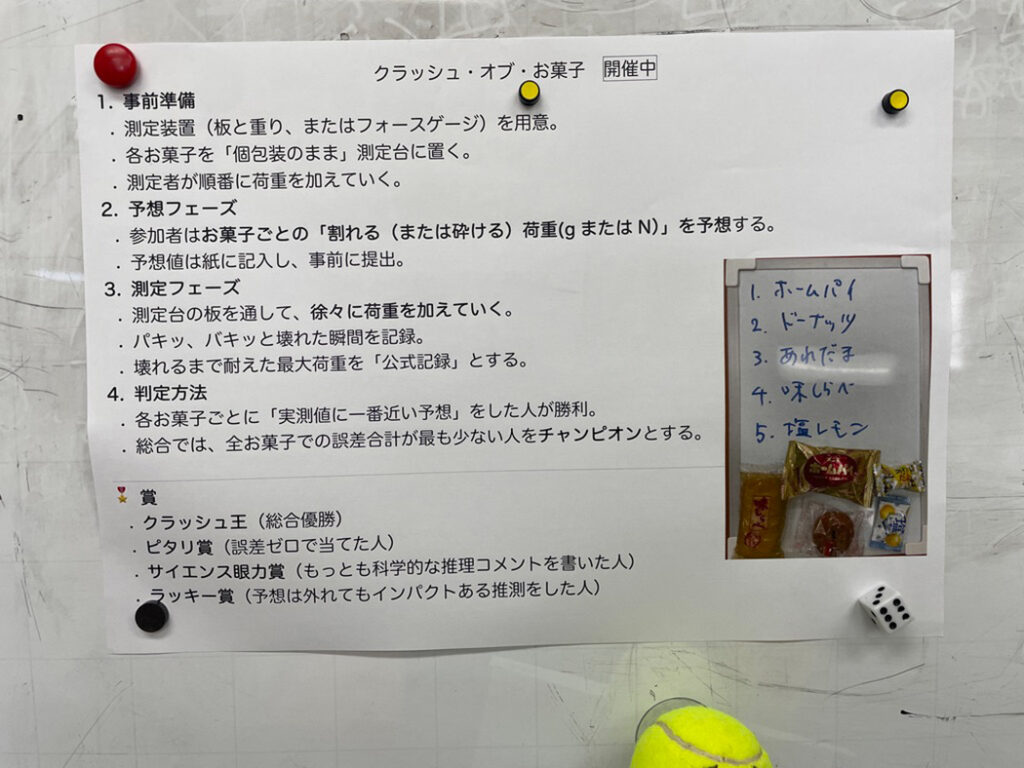 クラッシュ・オブ・お菓子 開催中
1. 事前準備
. 測定装置（板と重り、またはフォースゲージ）を用意。
. 各お菓子を「個包装のまま」測定台に置く。
. 測定者が順番に荷重を加えていく。
2. 予想フェーズ
. 参加者はお菓子ごとの「割れる（または砕ける）荷重(g または N)」を予想する。
. 予想値は紙に記入し、事前に提出。
3. 測定フェーズ
. 測定台の板を通して、徐々に荷重を加えていく。
. パキッ、バキッと壊れた瞬間を記録。
. 壊れるまで耐えた最大荷重を「公式記録」とする。
4. 判定方法
. 各お菓子ごとに「実測値に一番近い予想」をした人が勝利。
. 総合では、全お菓子での誤差合計が最も少ない人をチャンピオンとする。
賞
. クラッシュ王（総合優勝）
. ピタリ賞（誤差ゼロで当てた人）
. サイエンス眼力賞（もっとも科学的な推理コメントを書いた人）
. ラッキー賞（予想は外れてもインパクトある推測をした人）
1. ホームパイ
2. ドーナッツ
3. あれだま
4. 味しらべ
5. 塩レモン
ホームパイ